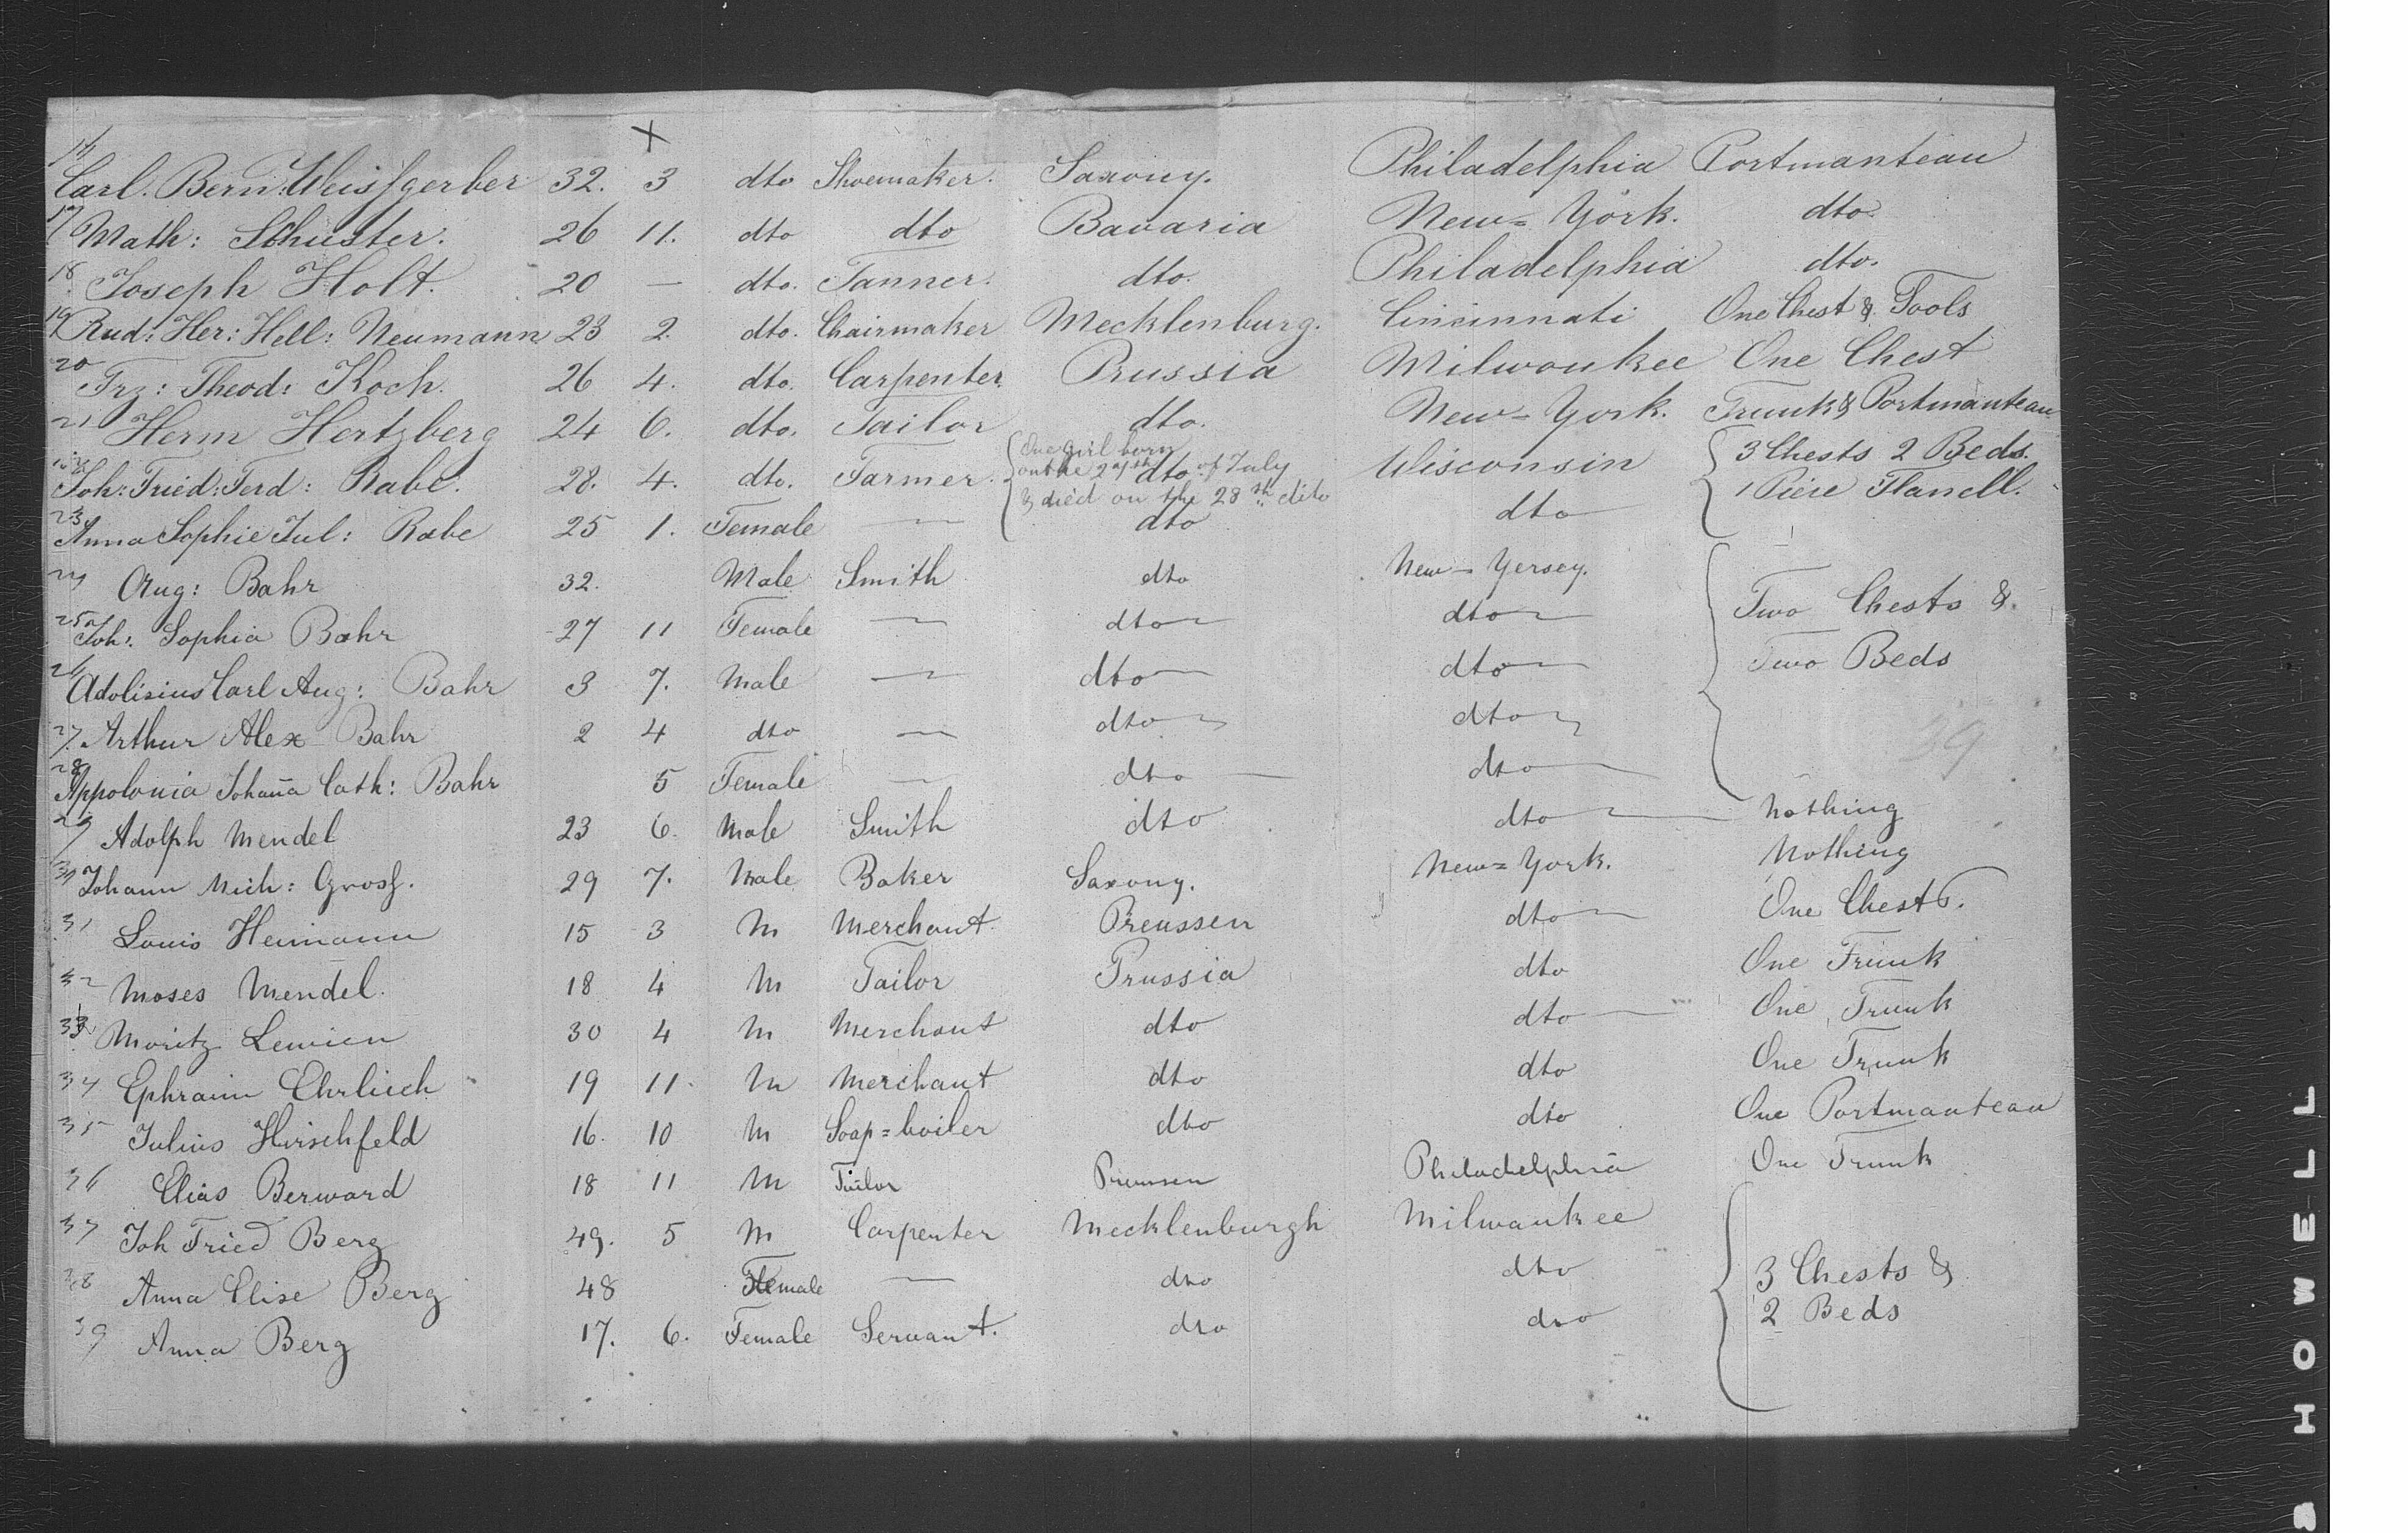 X
16 Carl. Bern: Weissgerber 32. 3 dto Shoemaker. Saxony. Philadelphia Portmanteau
17 Math: Schuster. 26 11. dto dto Bavaria New=York. dto.
18 Joseph Holt. 20 — dto. Tanner. dto. Philadelphia dto.
19 Rud: Her: Hell: Neumann 23 2. dto. Chairmaker Mecklenburg. Cincinnati One Chest & Tools
20 Frz: Theod: Koch. 26 4. dto. Carpenter. Prussia Milwoukee One Chest
21 Herm Hertzberg 24 6. dto. Tailor dto. New-York. Trunk & Portmanteau
One girl born
on the 27th of July
& died on the 28th dito
Joh: Fried: Ferd: Rabe. 28. 4. dto. Farmer. dto Wisconsin 3 Chests 2 Beds.
1 Piere Flanell.
23 Anna Sophie Jul: Rabe 25 1. Female — dto dto
24 Aug: Bahr 32. Male Smith dto New-Yersey.
25 Joh: Sophia Bahr 27 11 Female — dto dto Two Chests &
26 Adolisius Carl Aug: Bahr 3 7. Male — dto dto Two Beds
27. Arthur Alex Bahr 2 4 dto — dto dto
39
28 Appolonia Johanna Cath: Bahr 5 Female — dto dto
29 Adolph Mendel 23 6. Male Smith dto dto Nothing
30 Johann Mich: Gross. 29 7. Male Baker Saxony. New=York. Nothing
31 Louis Heimann 15 3 M Merchant. Preussen dto One Chest.
32 Moses Mendel. 18 4 M Tailor Prussia dto One Trunk
33 Moritz Lewien 30 4 M Merchant dto dto One Trunk
34 Ephraim Ehrlich 19 11. M Merchant dto dto One Trunk
35 Julius Hirschfeld 16. 10 M Soap=boiler dto dto One Portmanteau
36 Elias Berward 18 11 M Tailor Preussen Philadelphia One Trunk
37 Joh Fried Berg 49. 5 M Carpenter Mecklenburgh Milwaukee
38 Anna Elise Berg 48 Female — dto dto 3 Chests &
39 Anna Berg 17. 6. Female Servant. dto dto 2 Beds
HOWELL